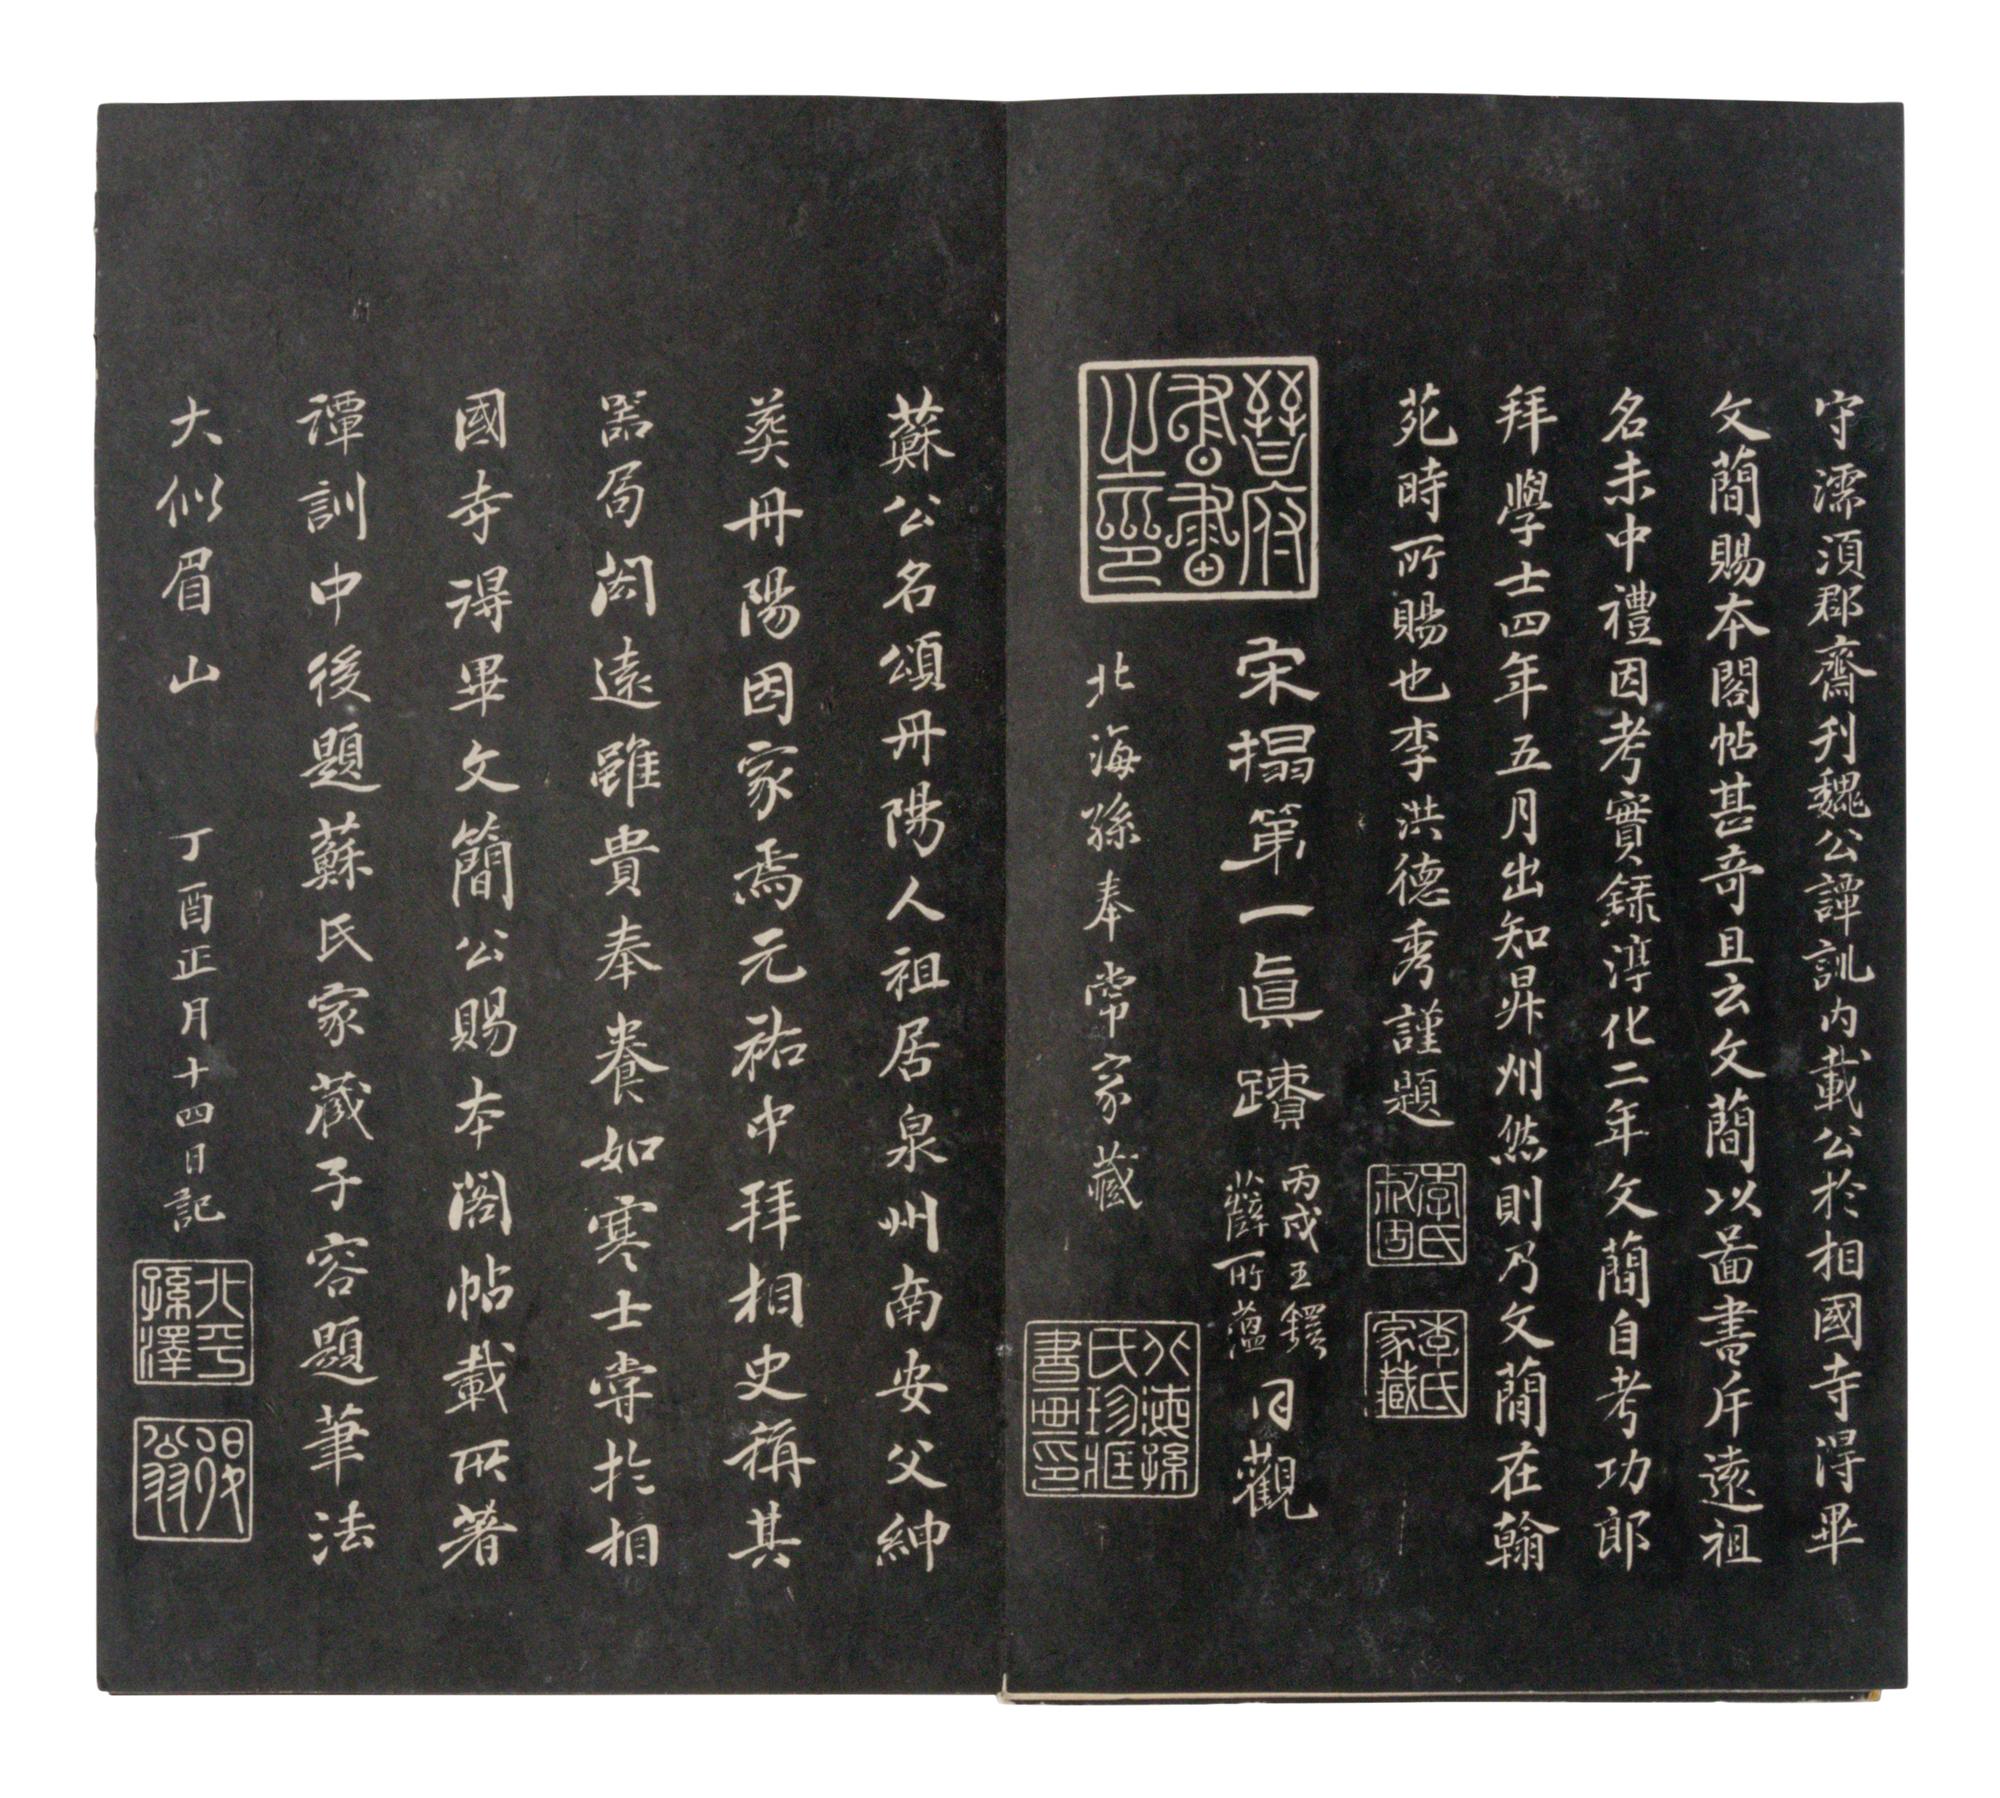 守濡須郡齋刋魏公譚訓内載公於相國寺得畢
文簡賜本閣帖甚奇且云文簡以啚書斥遠祖
名未中禮因考實録淳化二年文簡自考功郎
拜學士四年五月出知昇州然則乃文簡在翰
苑時所賜也李洪德秀謹題
李氏叔固
李氏家藏
宋搨第一眞蹟
丙戌王鐸
薛所蘊
同觀
晉府書畫之印
北海孫奉常家藏
北海孫氏珍藏書畫印
蘇公名頌丹陽人祖居泉州南安父紳
葬丹陽因家焉元祐中拜相史稱其
器局閎遠雖貴奉養如寒士嘗於相
國寺得畢文簡公賜本閣帖載所著
譚訓中後題蘇氏家藏子容題筆法
大似眉山
丁酉正月十四日記
北平孫澤
退翁